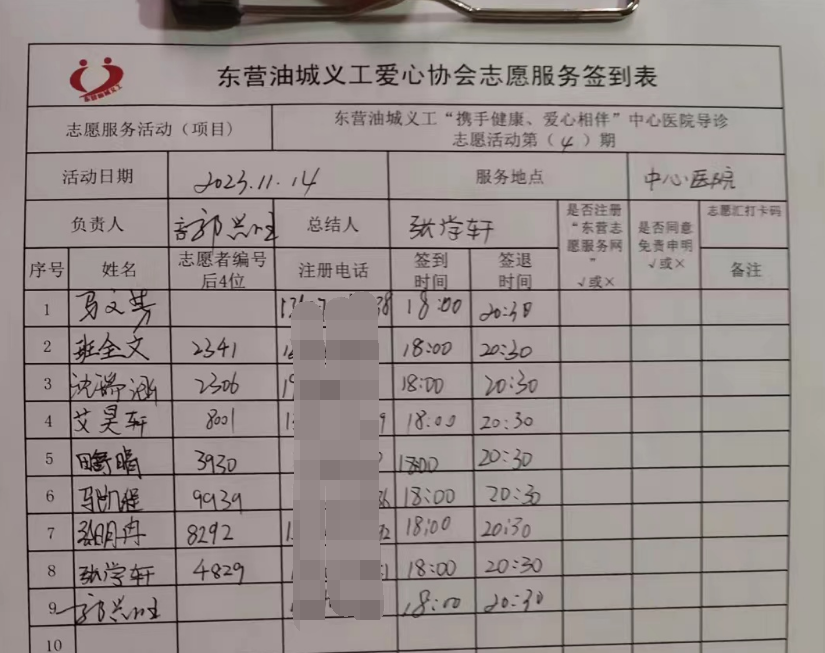 东营油城义工爱心协会志愿服务签到表
志愿服务活动（项目） 东营油城义工“携手健康、爱心相伴”中心医院导诊
志愿活动第（4）期
活动日期 2023.11.14 服务地点 中心医院
负责人 总结人 张学轩 是否注册“东营志愿服务网” √或× 是否同意免责申明 √或× 志愿汇打卡码
序号 姓名 志愿者编号后4位 注册电话 签到时间 签退时间 备注
1 马文芳 18:00 20:30
2 班全文 2341 18:00 20:30
3 沈瑞涵 2306 18:00 20:30
4 艾昊轩 8001 18:00 20:30
5 3930 18:00 20:30
6 马凯程 9939 18:00 20:30
7 张明冉 8292 18:00 20:30
8 张学轩 4829 18:00 20:30
9 18:00 20:30
10